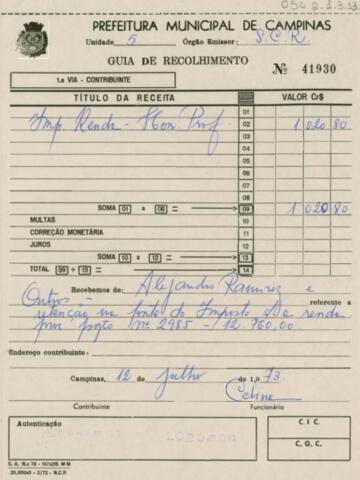 OSC 2.1.3.33
PREFEITURA MUNICIPAL DE CAMPINAS
Unidade 5 Órgão Emissor: S.C.R.
GUIA DE RECOLHIMENTO
Nº 41930
1.a VIA - CONTRIBUINTE
TÍTULO DA RECEITA VALOR Cr$
01
Imp. Renda - Hon. Prof. 02 1 020 80
03
04
05
06
07
08
SOMA 01 a 08 = 09 1 020 80
MULTAS 10
CORREÇÃO MONETÁRIA 11
JUROS 12
SOMA 10 a 12 = 13
TOTAL 09 + 13 = 14
Recebemos de: Alejandro Ramirez e
Outros - referente a
retenção na fonte do Imposto de renda
proc. pgto nº 2985 - 12.760,00.
Endereço contribuinte:
Campinas, 12 de julho de 1.973
Celine
Contribuinte Funcionário
Autenticação C.I.C.
1.020,80
C.G.C.
S. A. N.o 76 - 157x215 M M
25.000x5 - 2/73 - N.C.R.